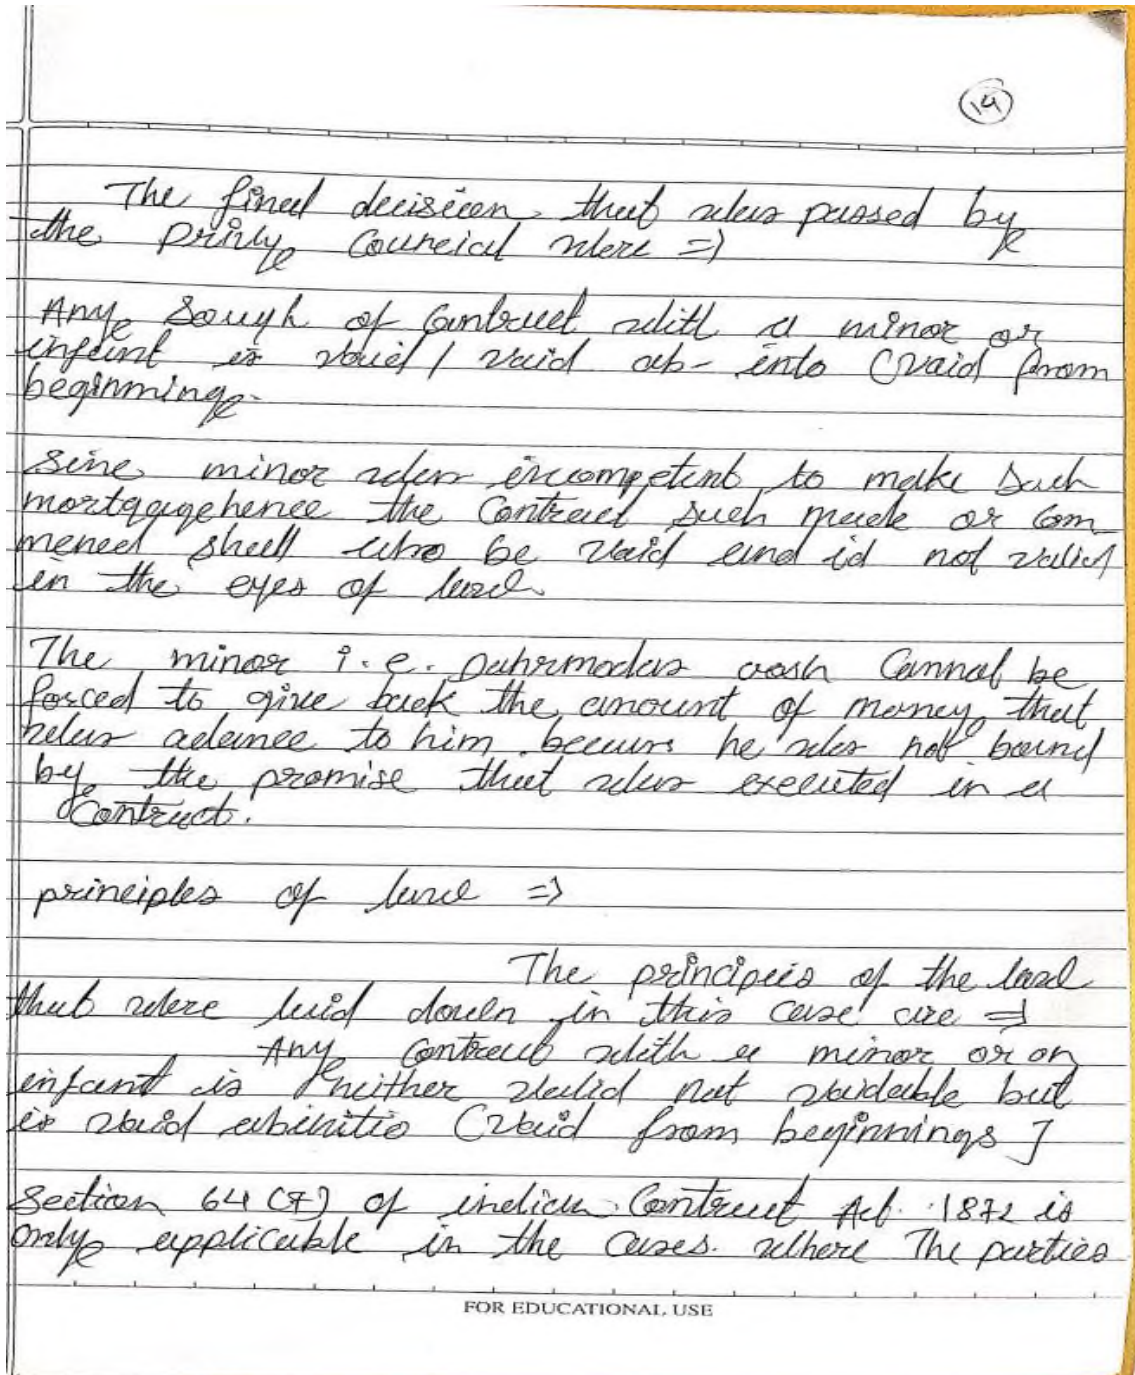 14
The final decision that was passed by
the privy Councial were =)
Any Sough of Contract with a minor or
infant is void / void ab- into (void from
beginning.
Sine minor was incompetent to make Such
mortgagehence the Contract such made or Com-
menced shall also be void and id not valid
in the eyes of law
The minor i.e. Dahrmodas Cannot be
forced to give back the amount of money that
was advance to him becaus he was not bound
by the promise that was executed in a
Contract.
principles of law =)
The principles of the law
that were laid down in this case are =)
Any Contract with a minor or an
infant is neither valid not voidable but
is void abinitio (void from beginnings ]
Section 64 (7) of indian Contract Act. 1872 is
only applicable in the Cases. where The parties
FOR EDUCATIONAL USE